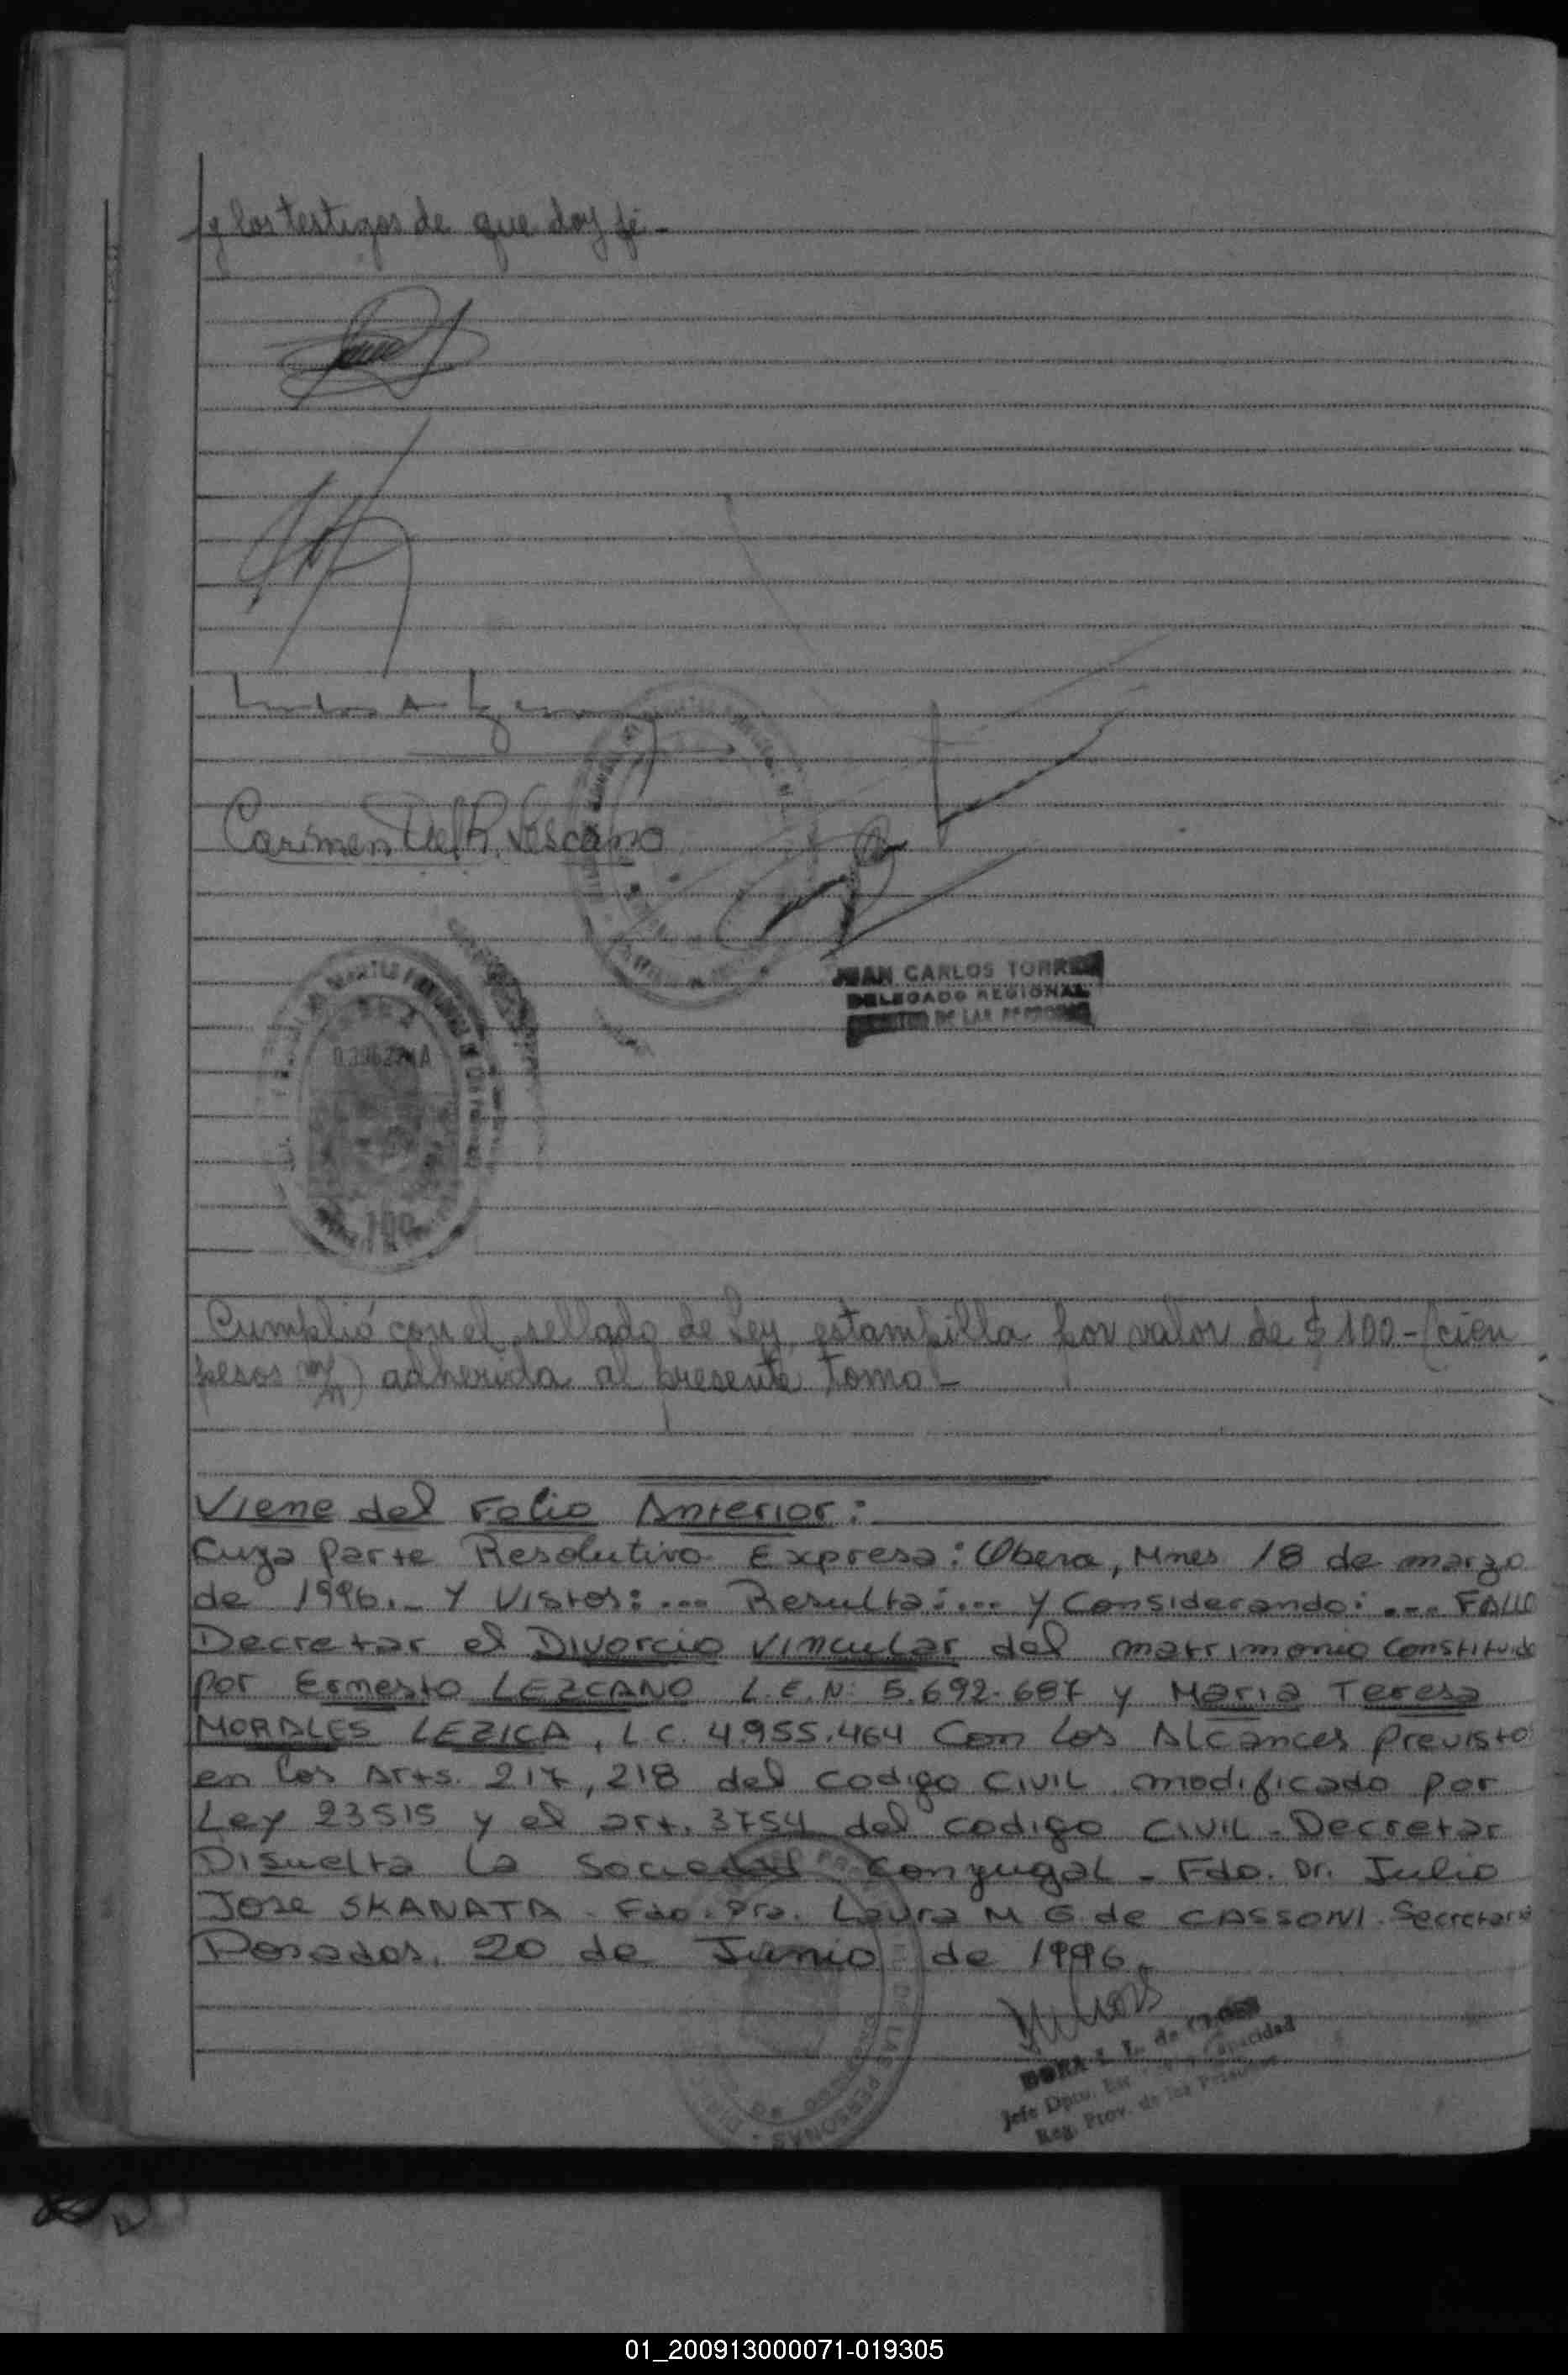 y los testigos de que doy fé.-
Carmen Del R. Lescano
JUAN CARLOS TORRES
DELEGADO REGIONAL
DE LAS PERSONAS
100
Cumplió con el sellado de Ley, estampilla por valor de $ 100.- (cien
pesos m/n) adherida al presente tomo.-
Viene del Folio Anterior:
Cuya Parte Resolutiva Expresa: Obera, Mnes 18 de marzo
de 1996.- Y Vistos: ... Resulta: ... y Considerando: ... FALLO
Decretar el Divorcio Vincular del matrimonio Constituido
por Ernesto LEZCANO L.E.N: 5.692.687 y Maria Teresa
MORALES LEZICA, L C. 4.955.464 Con los Alcances Previsto
en los Arts. 217, 218 del codigo CIVIL modificado por
Ley 23515 y el art. 3754 del codigo CIVIL - Decretar
Disuelta la Sociedad Conyugal - Fdo. Dr. Julio
Jose SKANATA - Fdo. Dra. Laura M G. de CASSONI. Secretaria
Posadas, 20 de Junio de 1996.
DE LAS PERSONAS
Jefe Dpto. Capacidad
Reg. Prov. de las Personas
01_200913000071-019305